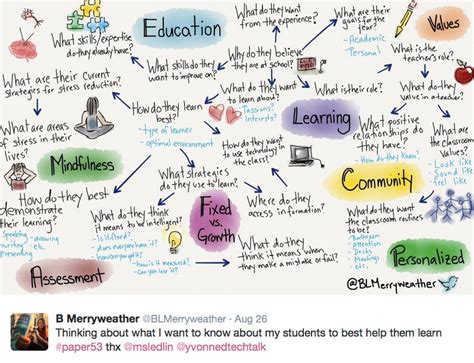 What do they want
from the experience?
What are their
goals for the
year?
- Academic
- Personal
Values
Education
What skills/expertise
do they already have?
What is the
teacher's role?
What are their current
strategies for stress reduction?
What skills do they
want to improve on?
Why do they believe
they are at school?
What do they want
to learn about?
Passions?
Interests?
What is their role?
What do they
value in a teacher?
How do they learn
best?
- type of learner
- optimal environment
Learning
What positive
relationships do
they have?
How do they know?
What are
the classroom
values?
Look like
Sound like
Feel like
What are areas
of stress in their
lives?
Mindfulness
How do they want
to use technology in
the class?
What strategies
do they use to learn?
Community
How do they best
demonstrate
their learning?
Speaking
drawing
Writing
etc.
Presenting
What do they think
it means to be intelligent?
- is it fixed?
Does everyone have it?
How is it measured?
Can you lose it?
Fixed
vs.
Growth
Where do they
access information?
What do they want
the classroom routines
to be?
Bathroom
Attention
Desks
Meetings
etc.
What do they
think it means when
they make a mistake or fail?
Personalized
Assessment
@BLMerryweather
B Merryweather @BLMerryweather · Aug 26
Thinking about what I want to know about my students to best help them learn
#paper53 thx @msledlin @yvonnedtechtalk